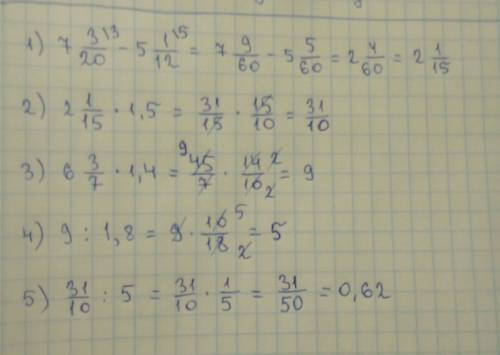 1) 7 3/20 \3 - 5 1/12 \5 = 7 9/60 - 5 5/60 = 2 4/60 = 2 1/15
2) 2 1/15 · 1,5 = 31/15 · 15/10 = 31/10
3) 6 3/7 · 1,4 = 9 45/7 · 14 2/10 2 = 9
4) 9 : 1,8 = 9 · 10 5/18 2 = 5
5) 31/10 : 5 = 31/10 · 1/5 = 31/50 = 0,62